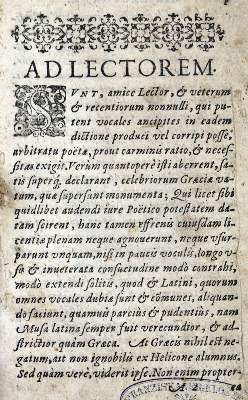 AD LECTOREM.
SVNT, amice Lector, & veterum
& recentiorum nonnulli, qui pu-
tent vocales ancipites in eadem
dictione produci vel corripi posse,
arbitratu poëtæ, prout carminis ratio, & neces-
sitas exigit. Verùm quantopere isti aberrent, sa-
tis superq́; declarant, celebriorum Græcia va-
tum, quæ supersunt monumenta; Qui licet sibi
quidlibet audendi iure Poëtico potestatem da-
tam scirent, hanc tamen effrenis cuiusdam li-
centia plenam neque agnouerunt, neque vsur-
parunt vnquam, nisi in paucis voculis, longo v-
su & inueterata consuetudine modò contrahi,
modò extendi solitis, quod & Latini, quorum
omnes vocales dubiæ sunt & cõmunes, aliquan-
do faciunt, quamuis parciùs & pudentiùs, nam
Musa latina semper fuit verecundior, & ad-
strictior quàm Græca. At Græcis nihil est ne-
gatum, ait non ignobilis ex Helicone alumnus.
Sed quàm verè, viderit ipse. Non enim propter-
ea